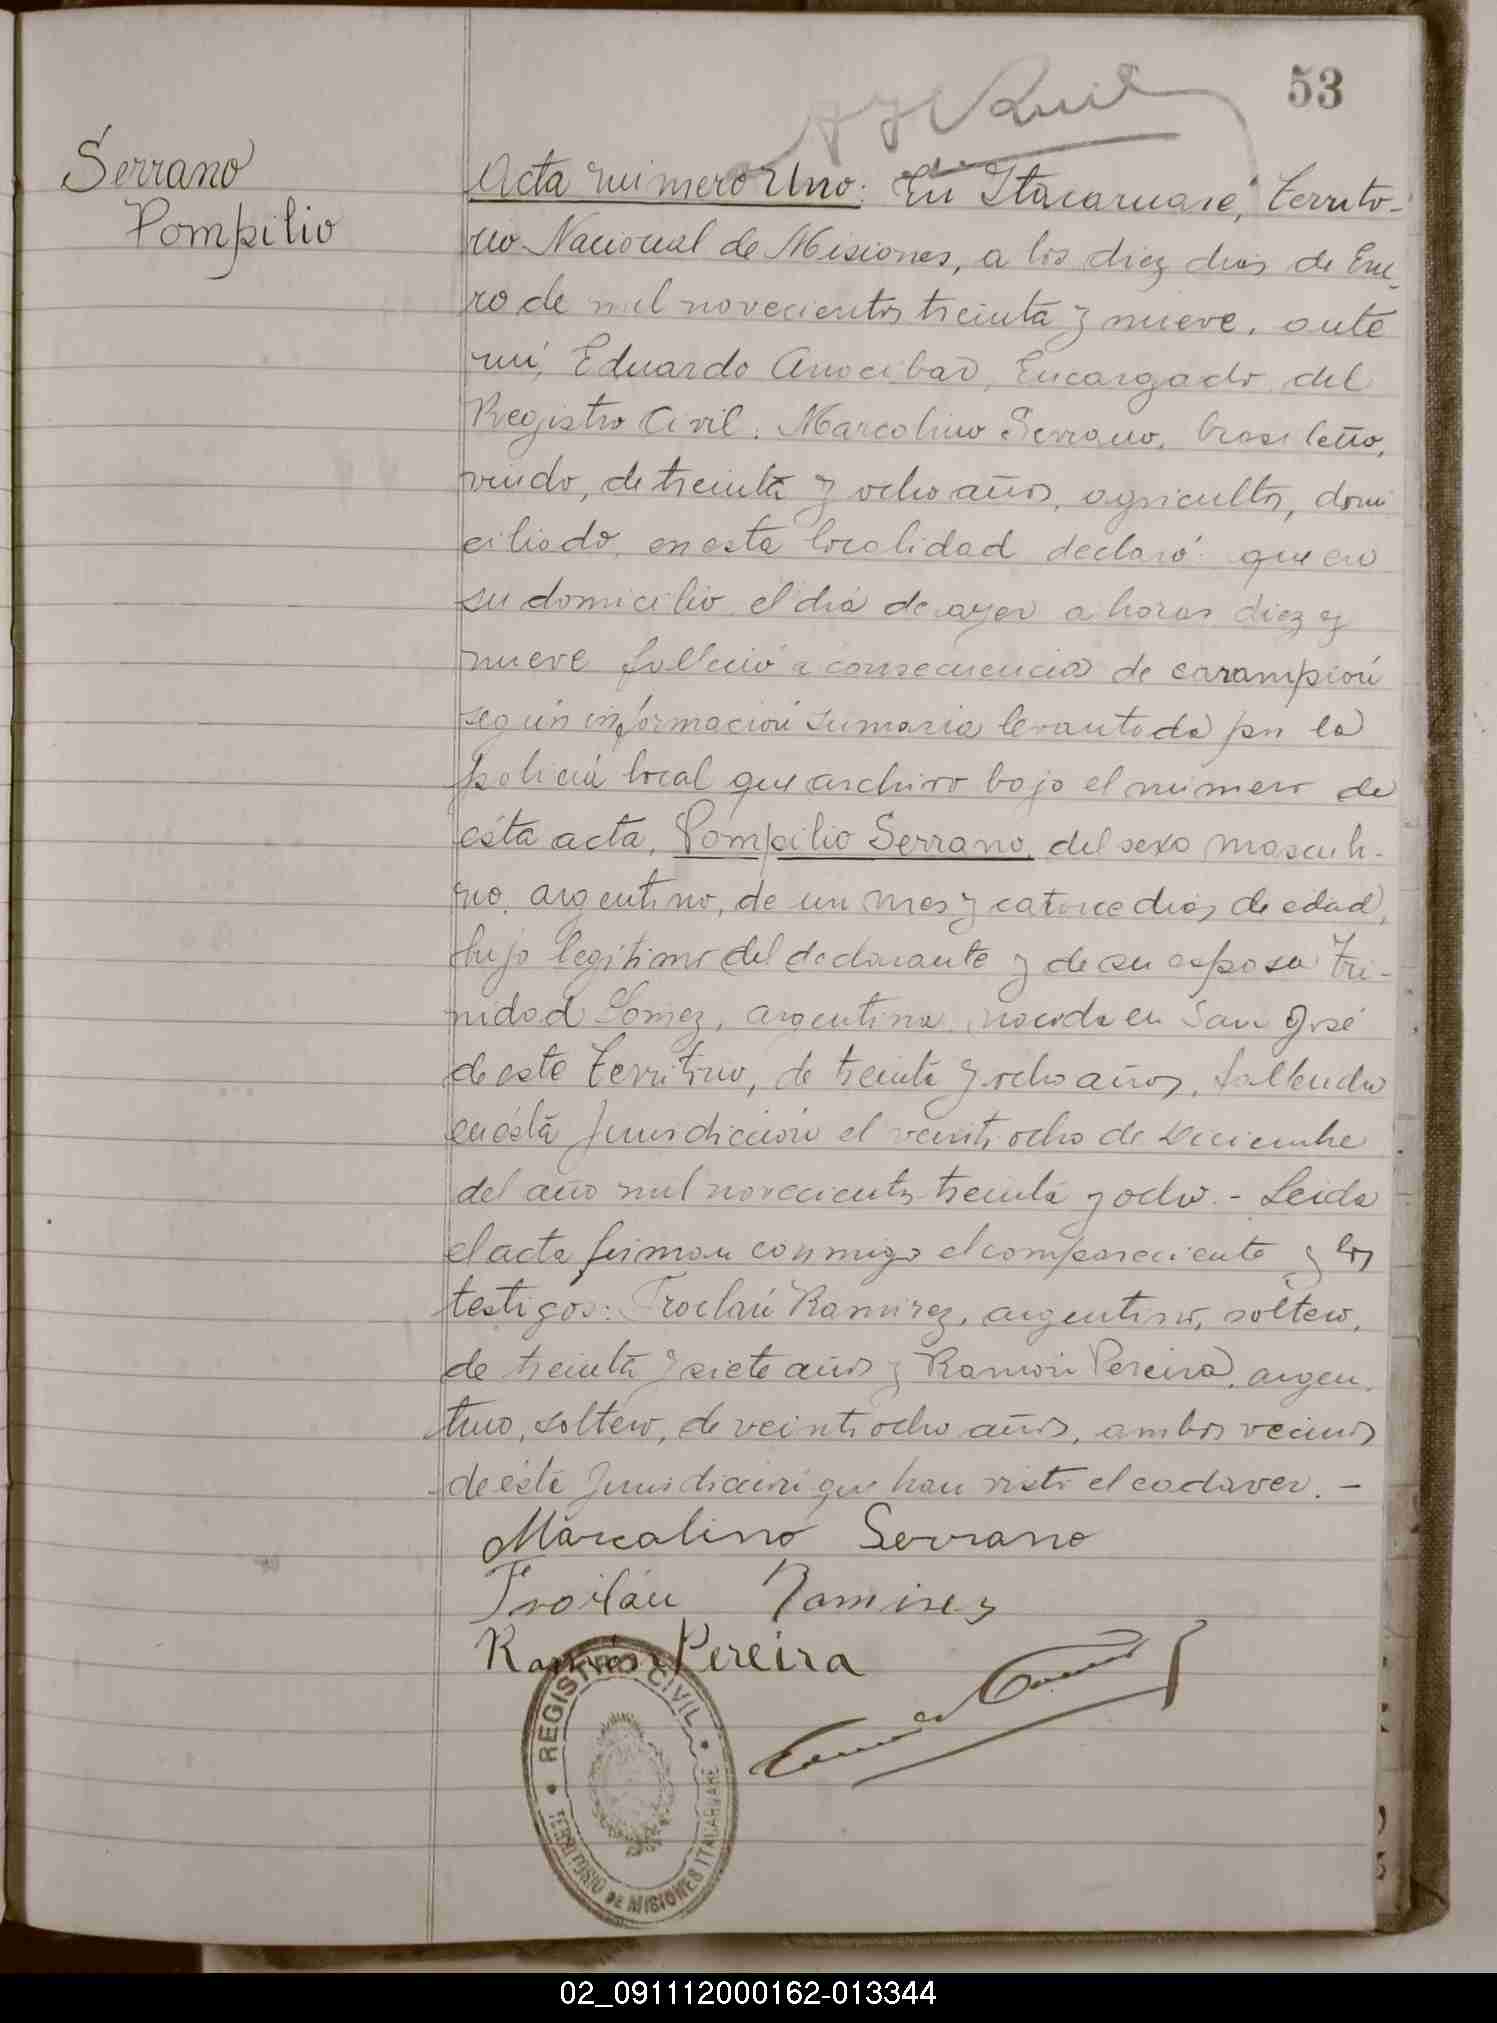 53
Serrano
Pompilio
Acta número Uno: En Itacaruaré, Territo-
rio Nacional de Misiones, a los diez dias de Ene-
ro de mil novecientos treinta y nueve, ante
mi, Eduardo Anocibar, Encargado del
Registro Civil, Marcolino Serrano, brasileño,
viudo, de treinta y ocho años, agricultor, domi
ciliado en esta localidad declaró: que en
su domicilio el dia de ayer a horas diez y
nueve falleció a consecuencia de carampión
según información sumaria levantada por la
policia local que archivo bajo el número de
ésta acta, Pompilio Serrano, del sexo mascul-
ino, argentino, de un mes y catorce dias de edad,
hijo legitimo del declarante y de su esposa Tri-
nidad Gomez, argentina, nacida en San José
de este territorio, de treinta y ocho años, fallecida
en ésta jurisdicción el veintiocho de Diciembre
del año mil novecientos treinta y ocho. - Leida
el acta firman conmigo el compareciente y los
testigos: Froilán Ramirez, argentino, soltero,
de treinta y siete años y Ramón Pereira, argen-
tino, soltero, de veintiocho años, ambos vecinos
de ésta jurisdicción que han visto el cadaver. -
Marcalino Serrano
Froilán Ramirez
Ramón Pereira
REGISTRO CIVIL
TERRITORIO DE MISIONES ITACARUARE
02_091112000162-013344